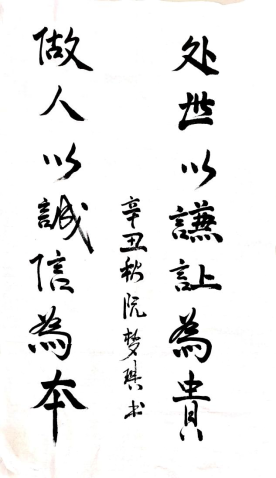 处世以謙让為貴
做人以誠信為本
辛丑秋阮梦琪书